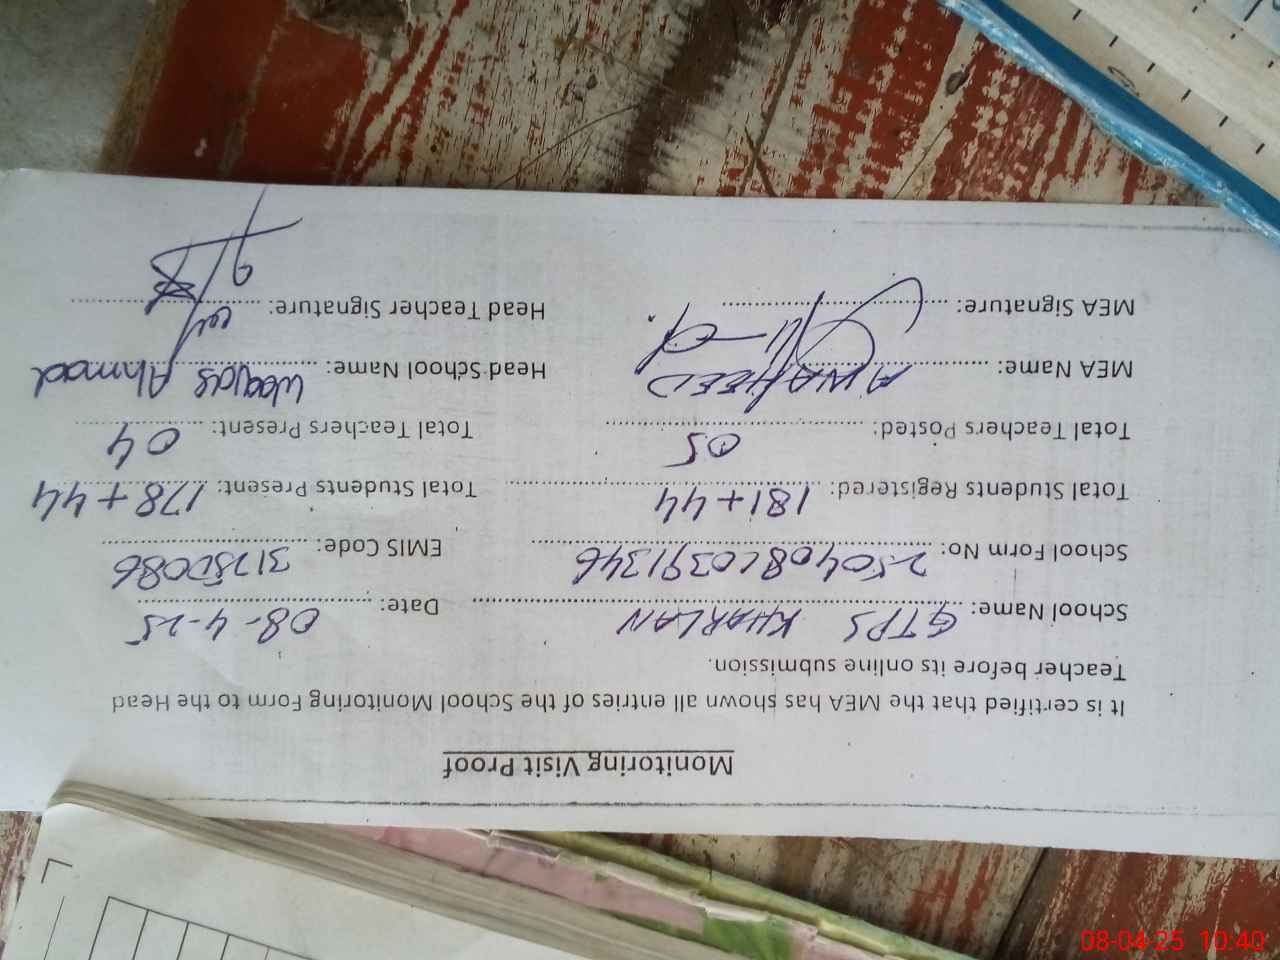 Monitoring Visit Proof
It is certified that the MEA has shown all entries of the School Monitoring Form to the Head
Teacher before its online submission.
School Name: GTPS KHARLAN Date: 08-4-25
School Form No: 250408L0391346 EMIS Code: 31250086
Total Students Registered: 181+44 Total Students Present: 178+44
Total Teachers Posted: 05 Total Teachers Present: 04
MEA Name: A WAHEED Head School Name: Waqas Ahmad
MEA Signature: Head Teacher Signature:
08-04-25 10:40